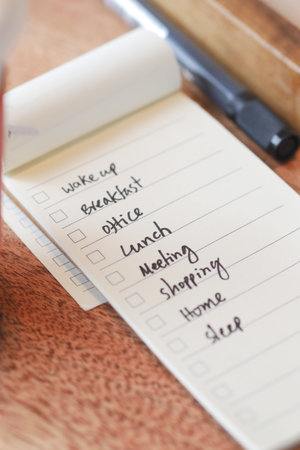 wake up
Breakfast
office
Lunch
Meeting
shopping
Home
sleep